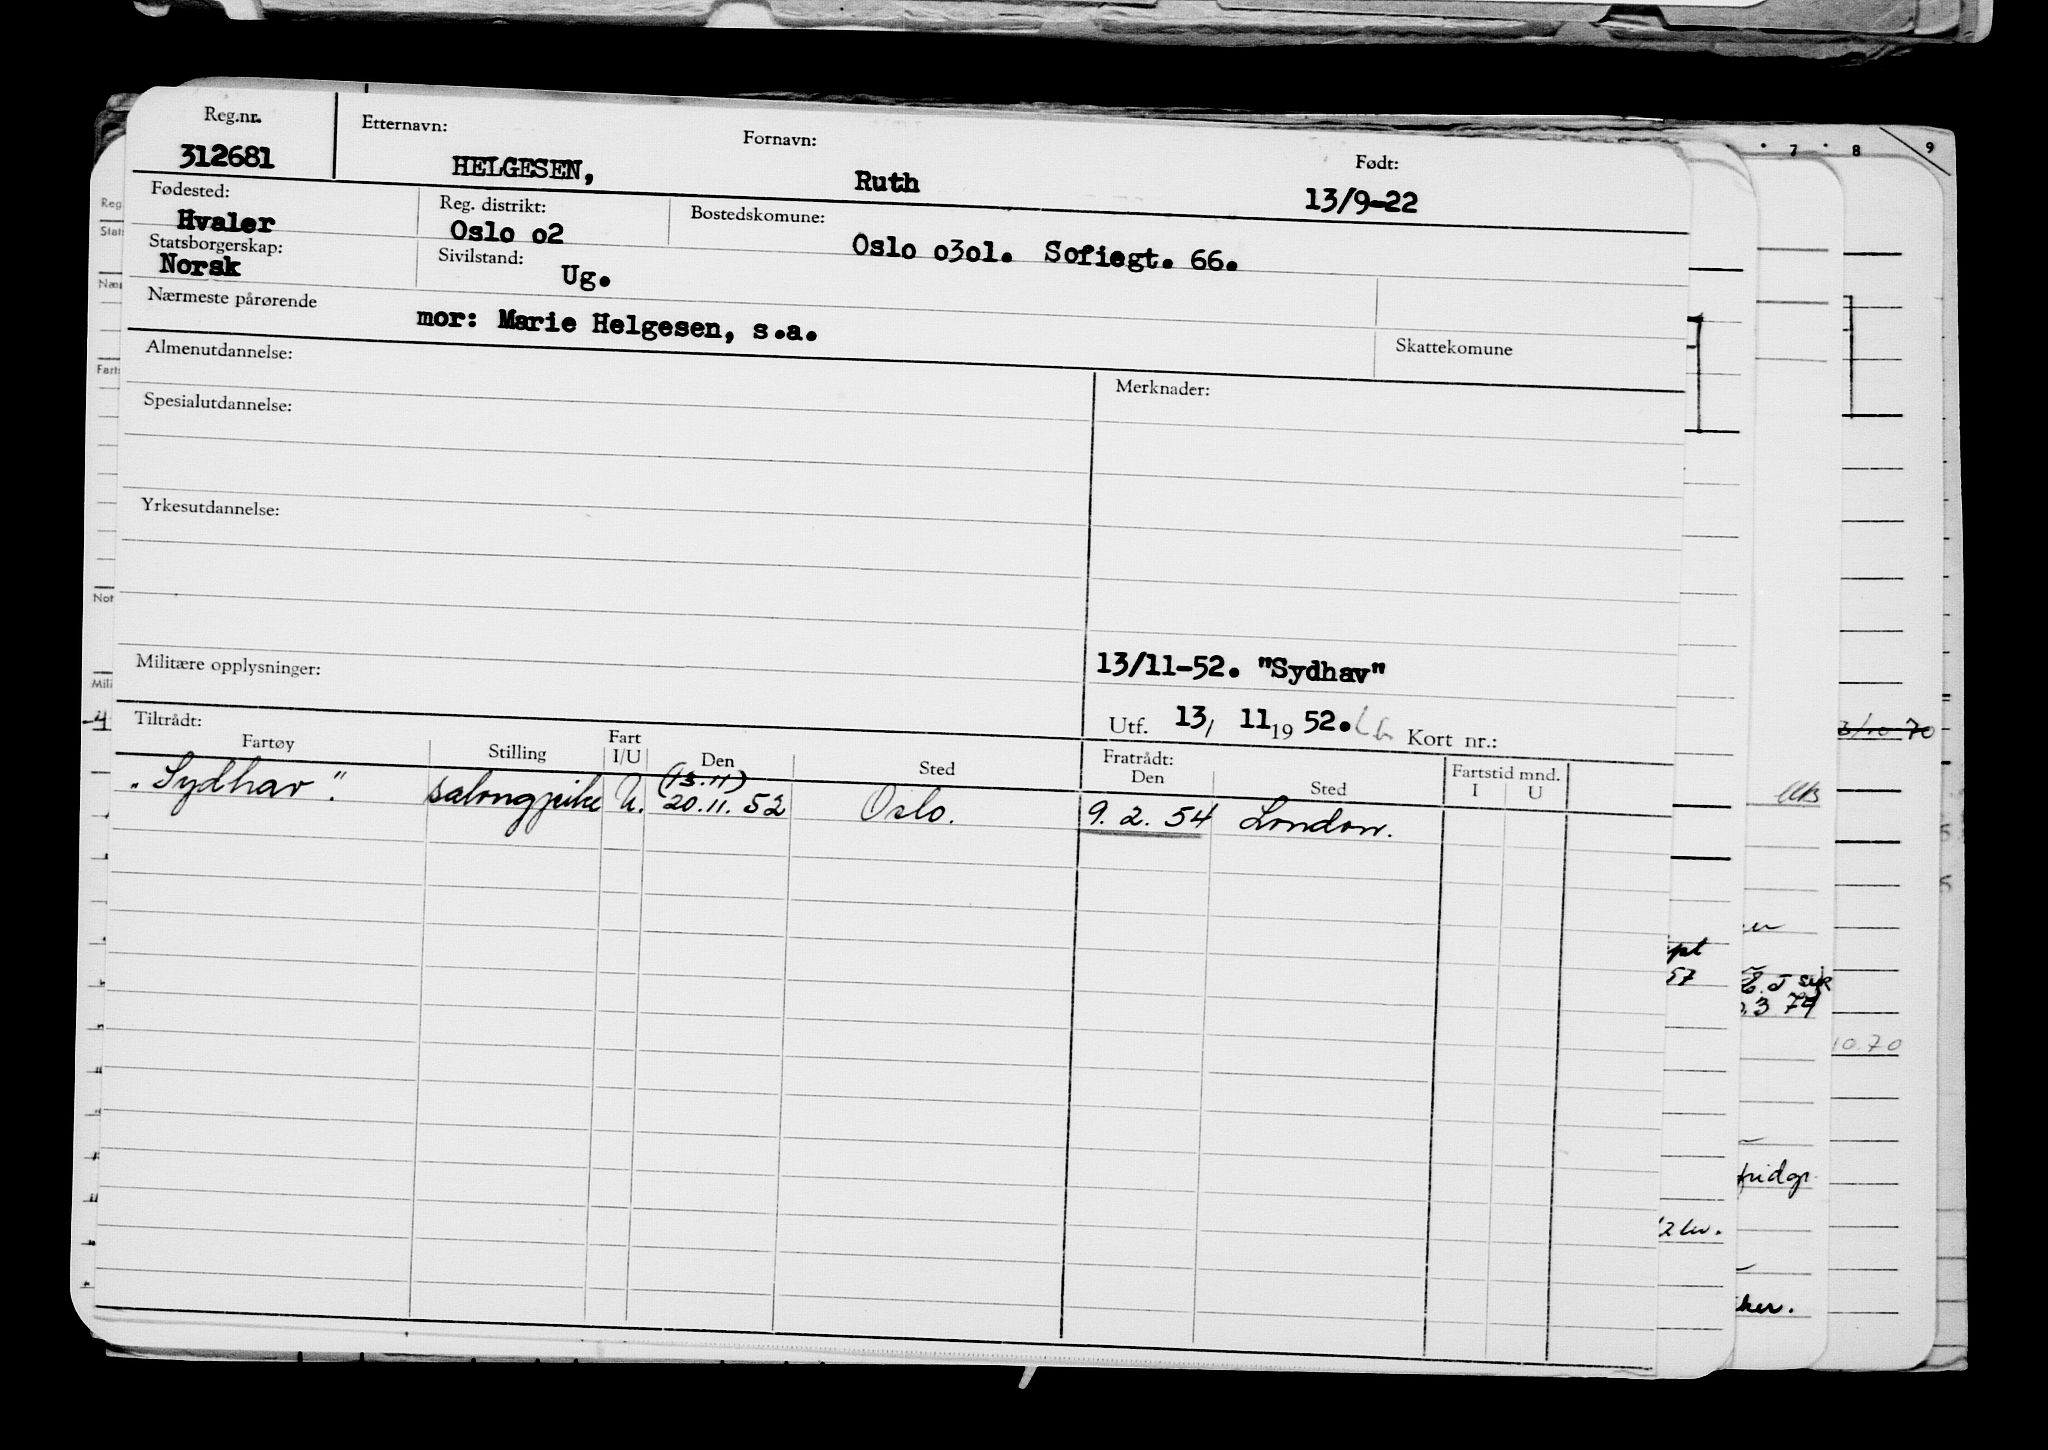 Reg.nr. Etternavn: Fornavn: Født:
312681 HELGESEN, Ruth 13/9-22
Fødested: Reg. distrikt: Bostedskomune:
Hvaler Oslo o2 Oslo o3o1. Sofiegt. 66.
Statsborgerskap: Sivilstand:
Norsk Ug.
Nærmeste pårørende mor: Marie Helgesen, s.a.
Almenutdannelse: Skattekomune
Merknader:
Spesialutdannelse:
Yrkesutdannelse:
Militære opplysninger: 13/11-52. "Sydhav"
Utf. 13/ 11 19 52. Kort nr.:
Tiltrådt: Fratrådt: Fartstid mnd.
Fartøy Stilling Fart I/U Den Sted Den Sted I U
(13.11)
"Sydhav". salongpike U. 20.11.52 Oslo. 9.2.54 London.
7 8 9
Reg
Stat
Nær
Farts
Not
Mili
3/10 70
57
3 74
10.70